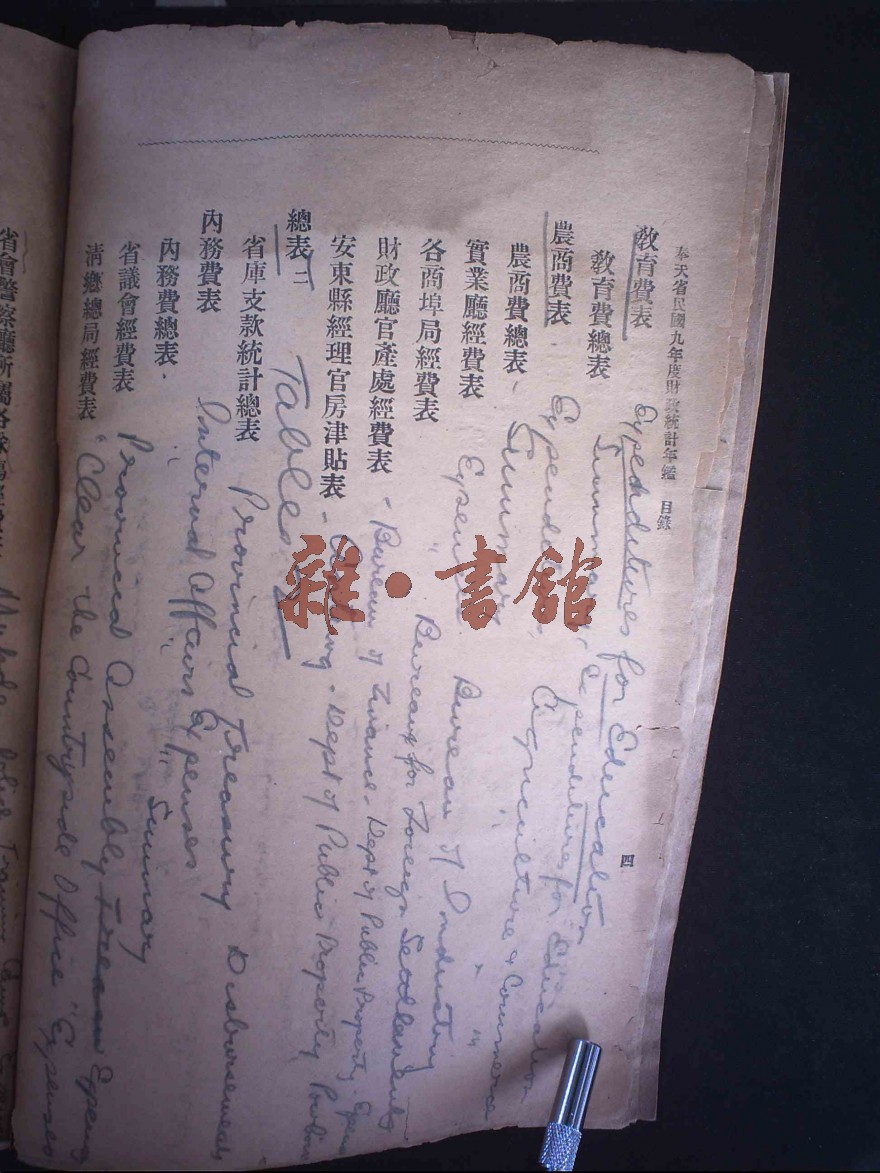 奉天省民國九年度財政統計年鑑 目錄
四
教育費表
Expenditures for Education
教育費總表
Summary, Expenditure for Education
農商費表
Expenditure, Agriculture & Commerce
農商費總表
Summary " " "
實業廳經費表
Expenses Bureau of Industry
各商埠局經費表
" Bureau for Foreign Settlements
財政廳官產處經費表
- Bureau of Finance - Dept of Public Property
安東縣經理官房津貼表
- Antung - Dept of Public Property
總表二
Tables
省庫支款統計總表
Provincial Treasury Disbursements
內務費表
Internal Affairs Expenses
內務費總表
" " Summary
省議會經費表
Provincial Assembly
清鄉總局經費表
"Clear the Countryside Office" Expenses
省會警察廳所屬各隊
雜·書館